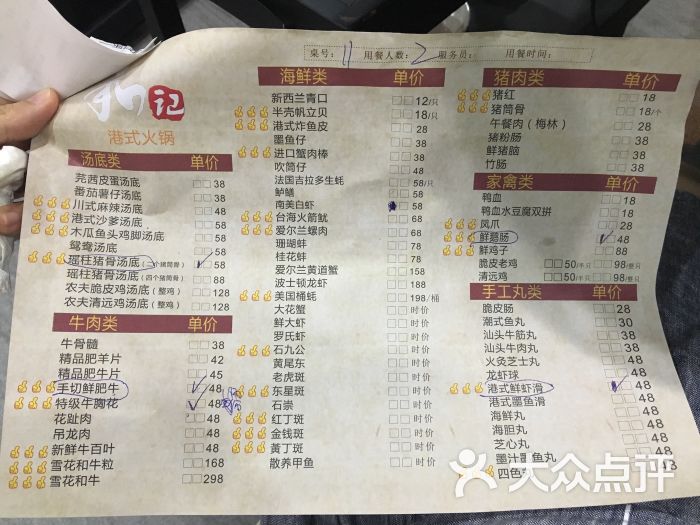 桌号: 11 用餐人数: 2 服务员: 用餐时间:
记
港式火锅
汤底类 单价
芫茜皮蛋汤底 38
番茄薯仔汤底 38
川式麻辣汤底 48
港式沙爹汤底 58
木瓜鱼头鸡脚汤底 58
鸳鸯汤底 58
瑶柱猪骨汤底(二个猪筒骨) 58
瑶柱猪骨汤底(四个猪筒骨) 88
农夫脆皮鸡汤底(整鸡) 128
农夫清远鸡汤底(整鸡) 128
牛肉类 单价
牛骨髓 38
精品肥羊片 42
精品肥牛片 45
手切鲜肥牛 48
特级牛胸花 48
花趾肉 48
吊龙肉 48
新鲜牛百叶 48
雪花和牛粒 168
雪花和牛 298
海鲜类 单价
新西兰青口 12/只
半壳帆立贝 18/只
港式炸鱼皮 28
墨鱼仔 38
进口蟹肉棒 38
吹筒仔 38
法国吉拉多生蚝 58/只
鲈鳝 58
南美白虾 58
台海火箭鱿 68
爱尔兰螺肉 68
珊瑚蚌 68
桂花蚌 78
爱尔兰黄道蟹 158
波士顿龙虾 168
美国桶蚝 198/桶
大花蟹 时价
鲜大虾 时价
罗氏虾 时价
石九公 时价
黄尾东 时价
老虎斑 时价
东星斑 时价
石崇 时价
红丁斑 时价
金钱斑 时价
黃丁斑 时价
散养甲鱼 时价
猪肉类 单价
猪红 18
猪筒骨 18/个
午餐肉(梅林) 28
猪粉肠 38
鲜猪脑 38
竹肠 38
家禽类 单价
鸭血 18
鸭血水豆腐双拼 18
凤爪 28
鲜鹅肠 48
鲜鸡子 58
脆皮老鸡 50/半只 98/整只
清远鸡 50/半只 98/整只
手工丸类 单价
脆皮肠 28
潮式鱼丸 30
汕头牛筋丸 38
汕头牛肉丸 38
火灸芝士丸 38
龙虾球 48
港式鲜虾滑 48
港式墨鱼滑 48
海鲜丸 48
海胆丸 48
芝心丸 48
墨汁墨鱼丸 48
四色
大众点评